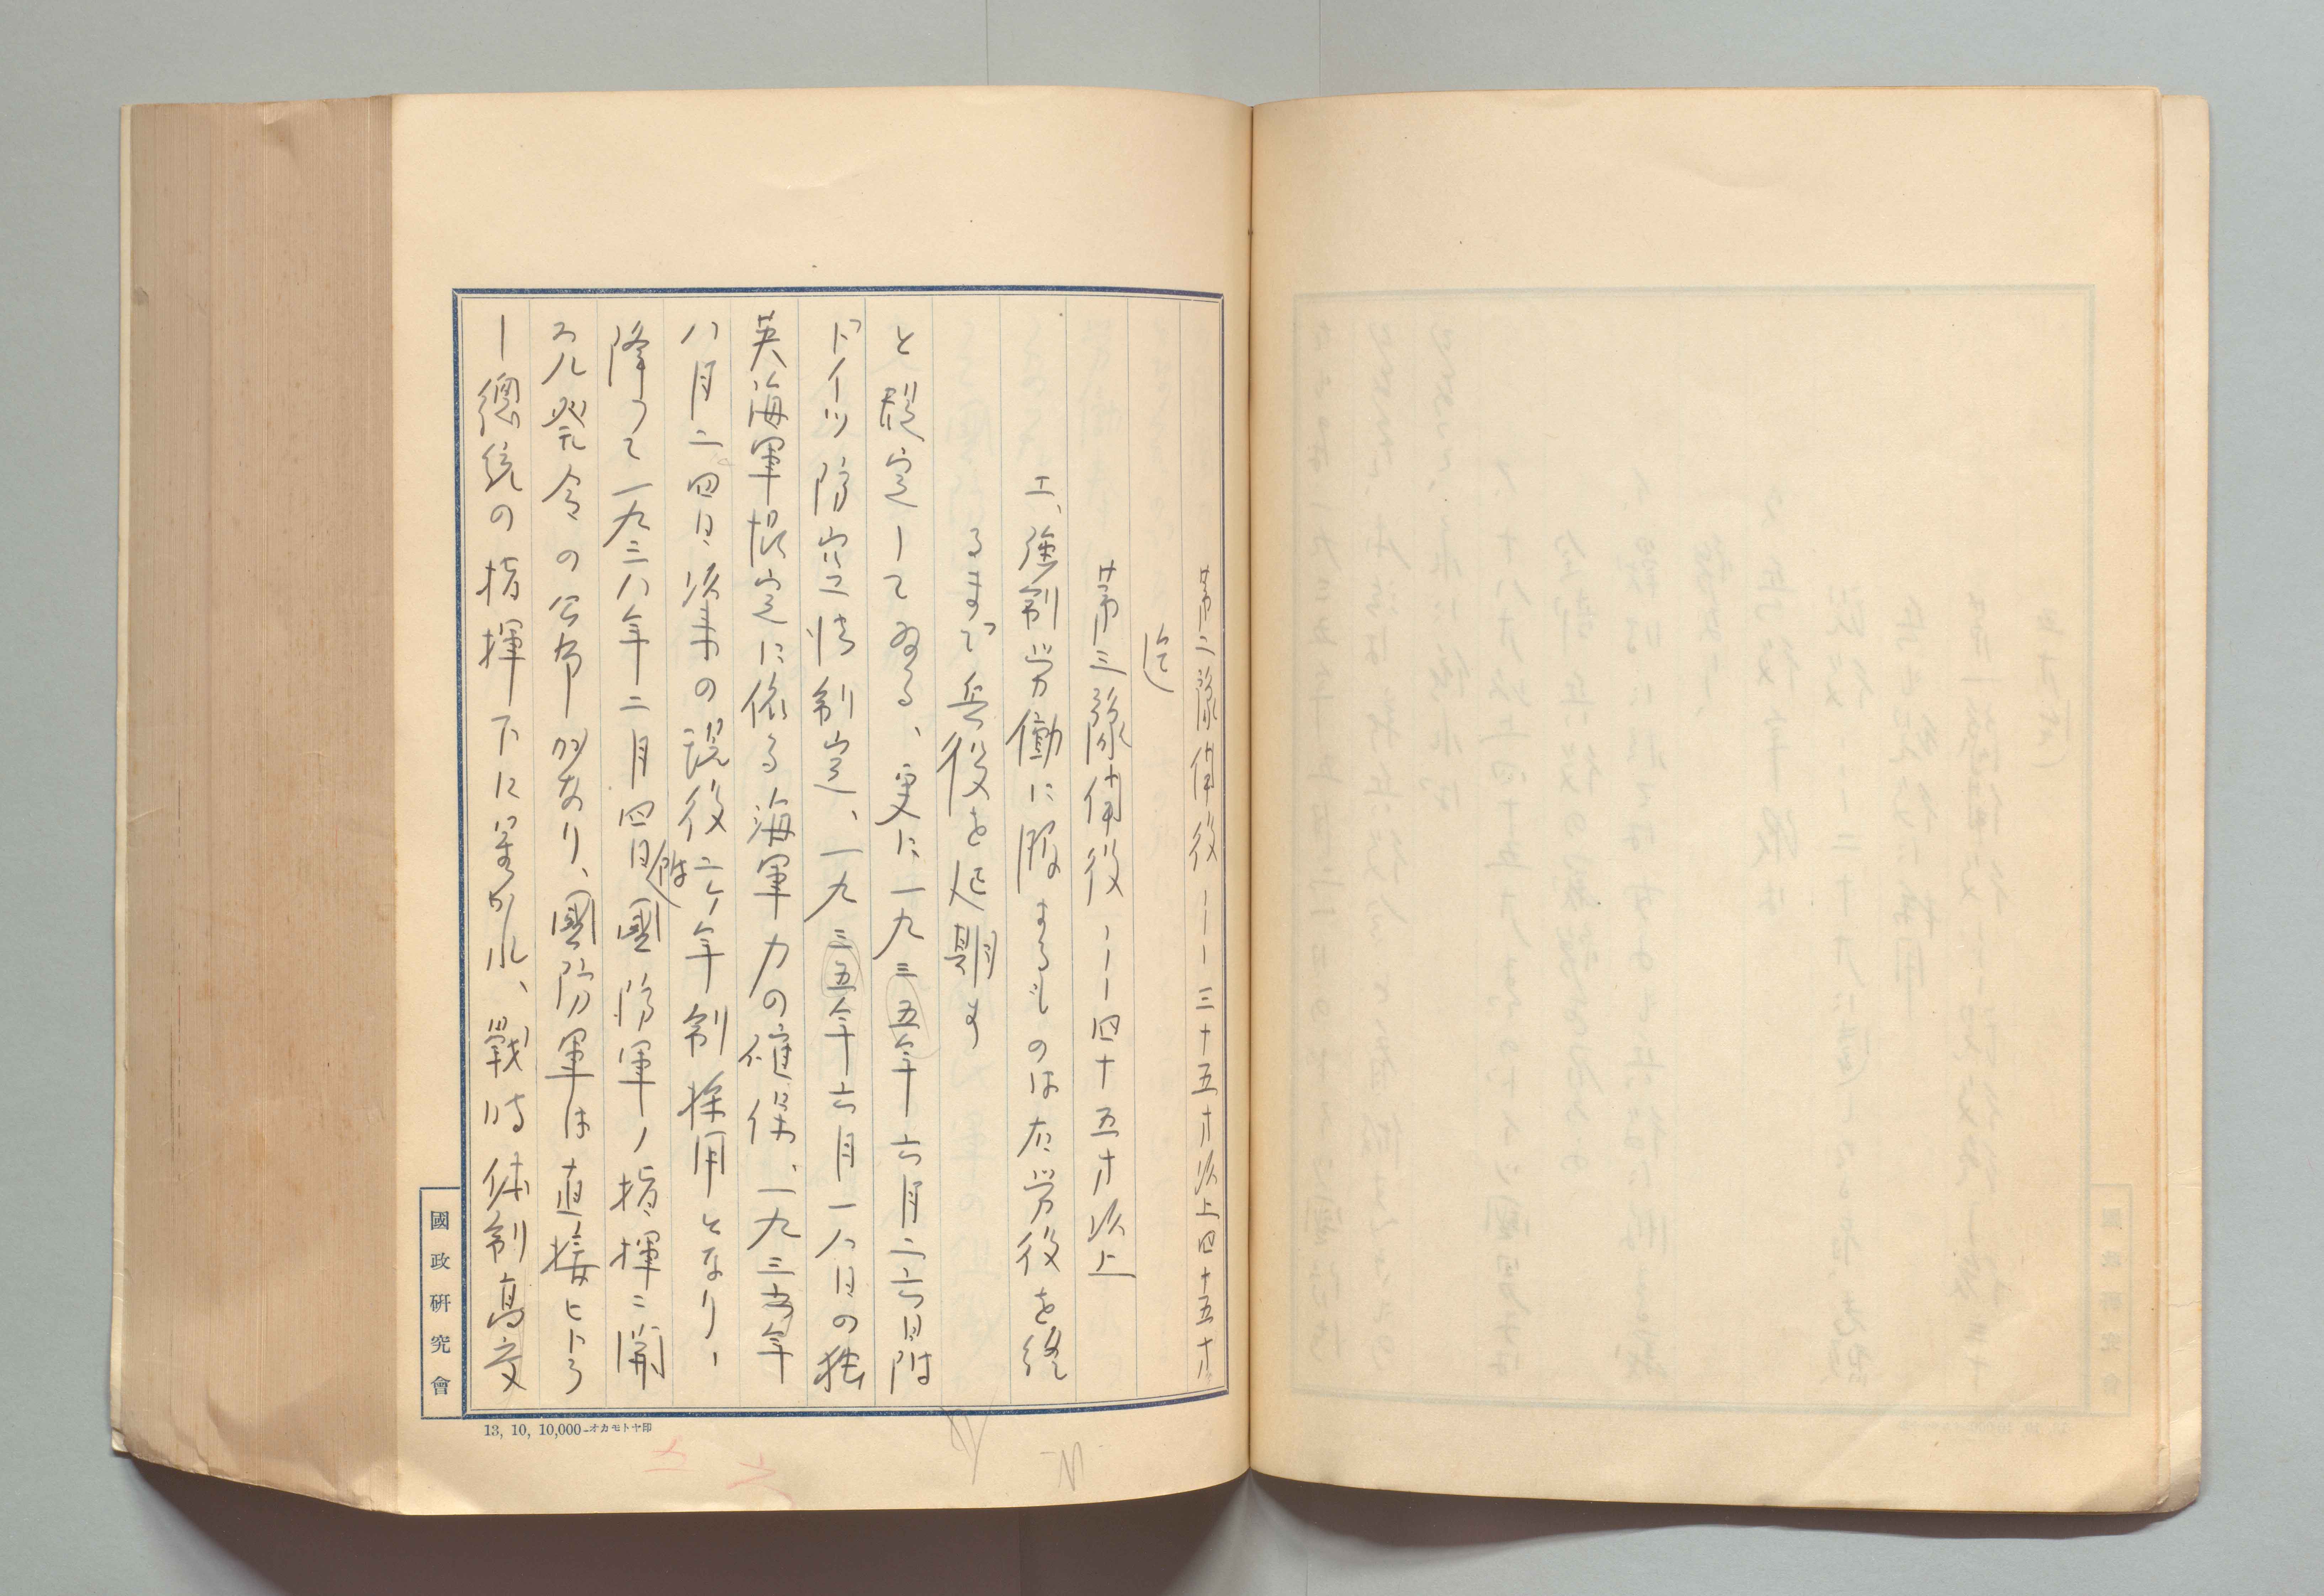 第二豫備役———三十五才以上四十五才
迄
第三豫備役———四十五才以上
エ、強制労働に服するものは右労役を終
るまで兵役を延期す
と規定してゐる、更に一九三五年六月二六日附
ドイツ防空法制定、一九三五年六月一八日の独
英海軍協定に依る海軍力の確保、一九三六年
八月二四日以来の現役二ヶ年制採用となり、
降って一九三八年二月四日附國防軍ノ指揮ニ関
スル発令の公布があり、國防軍は直接ヒトラ
ー總統の指揮下に置かれ、戰時体制高度
國政研究會
13, 10, 10,000—オカモトヤ印
六
五